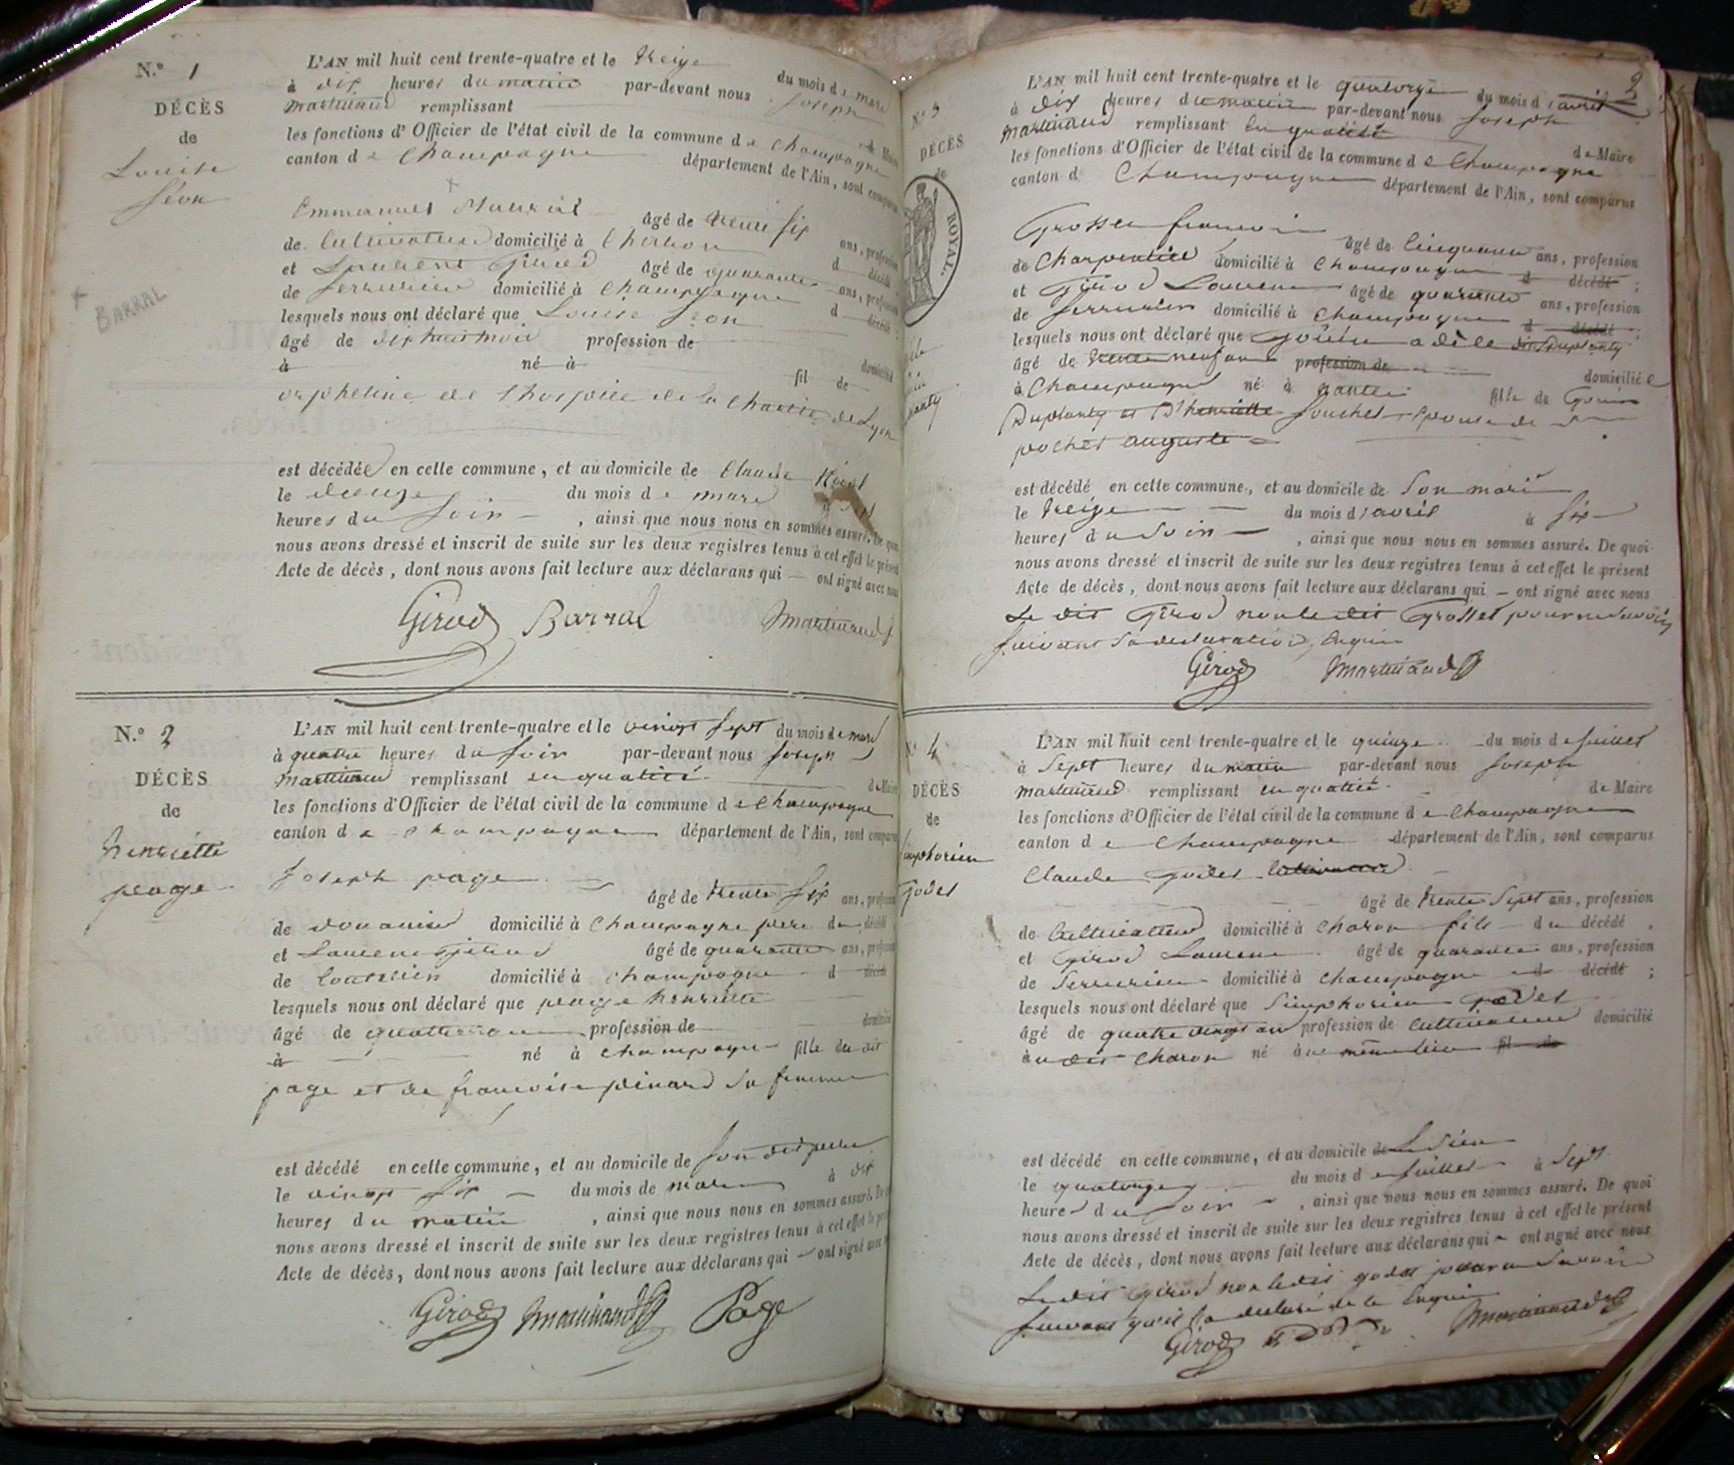 N.º 1
DÉCÈS
de
Louise
Séon
+ BARRAL
L'AN mil huit cent trente-quatre et le treize du mois de mars
à dix heures du matin par-devant nous Joseph
Martinand remplissant de Maire
les fonctions d'Officier de l'état civil de la commune de Champagne
canton de Champagne département de l'Ain, sont comparus
Emmanuel âgé de trente six ans, profession
de Cultivateur domicilié à d décédé
et Laurent Girod âgé de quarante ans, profession
de Serrurier domicilié à Champagne d décédé
lesquels nous ont déclaré que Louise Séon
âgé de dix huit mois profession de domicilié
à né à fil de
orpheline de l'hospice de la Charité de Lyon
est décédée en cette commune, et au domicile de Claude
le douze du mois de mars à
heures du soir, ainsi que nous nous en sommes assuré. De quoi
nous avons dressé et inscrit de suite sur les deux registres tenus à cet effet le présent
Acte de décès, dont nous avons fait lecture aux déclarans qui ont signé avec nous
Girod Barral Martinand
N.º 2
DÉCÈS
de
henriette
page
L'AN mil huit cent trente-quatre et le vingt sept du mois de mars
à quatre heures du soir par-devant nous Joseph
Martinand remplissant en qualité de Maire
les fonctions d'Officier de l'état civil de la commune de Champagne
canton de Champagne département de l'Ain, sont comparus
Joseph page
âgé de trente six ans, profession
de douanier domicilié à Champagne père du décédé
et Laurent Girod âgé de quarante ans, profession
de domicilié à Champagne d décédé
lesquels nous ont déclaré que page henriette
âgé de quatre ans profession de domicilié
à né à Champagne fille du dit
page et de francoise pinard sa femme
est décédé en cette commune, et au domicile de son dit père
le vingt six du mois de mars à dix
heures du matin, ainsi que nous nous en sommes assuré. De
nous avons dressé et inscrit de suite sur les deux registres tenus à cet effet le
Acte de décès, dont nous avons fait lecture aux déclarans qui ont signé avec
Girod Martinand Page
2
N.º 3
DÉCÈS
de
ROYAL.
L'AN mil huit cent trente-quatre et le quatorze du mois d'avril
à dix heures du matin par-devant nous Joseph
Martinand remplissant en qualité de Maire
les fonctions d'Officier de l'état civil de la commune de Champagne
canton d Champagne département de l'Ain, sont comparus
Grosset francois âgé de Cinquante ans, profession
de Charpentier domicilié à Champagne d décédé ;
et Girod Laurent âgé de quarante ans, profession
de Serrurier domicilié à Champagne d décédé
lesquels nous ont déclaré que Gouin adèle Duplanty
âgé de trente neuf ans profession de domiciliée
à Champagne né à nantes fille de Gouin
Duplanty et D'henriette fouchet épouse de Sr
pochet auguste
est décédé en cette commune, et au domicile de son mari
le treize du mois d'avril à six
heures du soir, ainsi que nous nous en sommes assuré. De quoi
nous avons dressé et inscrit de suite sur les deux registres tenus à cet effet le présent
Acte de décès, dont nous avons fait lecture aux déclarans qui ont signé avec nous
Le dit Girod non le dit Grosset pour ne savoir
suivant sa déclaration, Enquis
Girod Martinand
N.º 4
DÉCÈS
de
Simphorien
Godet
L'AN mil huit cent trente-quatre et le quinze du mois de Juillet
à sept heures du matin par-devant nous Joseph
Martinand remplissant en qualité de Maire
les fonctions d'Officier de l'état civil de la commune de Champagne
canton de Champagne département de l'Ain, sont comparus
Claude Godet Cultivateur
âgé de trente sept ans, profession
de Cultivateur domicilié à Charon fils du décédé
et Girod Laurent âgé de quarante ans, profession
de Serrurier domicilié à Champagne d décédé ;
lesquels nous ont déclaré que Simphorien Godet
âgé de quatre vingt an profession de Cultivateur domicilié
au dit Charon né au même lieu fil de
est décédé en cette commune, et au domicile de Le sien
le quatorze du mois de Juillet à sept
heures du soir, ainsi que nous nous en sommes assuré. De quoi
nous avons dressé et inscrit de suite sur les deux registres tenus à cet effet le présent
Acte de décès, dont nous avons fait lecture aux déclarans qui ont signé avec nous
Le dit Girod non le dit godet pour ne savoir
suivant qu'il l'a déclaré de ce Enquis
Girod Martinand